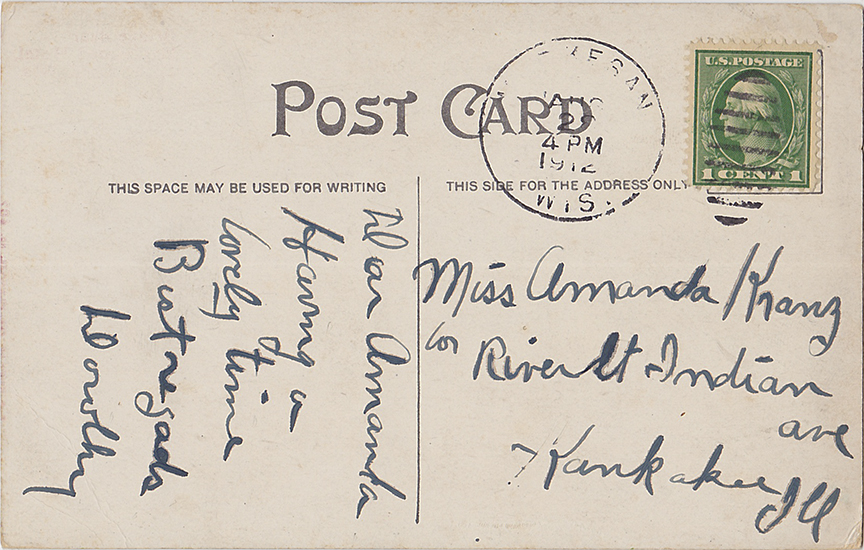 POST CARD
THIS SPACE MAY BE USED FOR WRITING
THIS SIDE FOR THE ADDRESS ONLY
U.S. POSTAGE
1 CENT 1
29
4 PM
1912
WIS.
Dear Amanda
Having a
lovely time
Best regads
Dorothy
Miss Amanda Kranz
cor River St - Indian
ave
Kankakee Ill